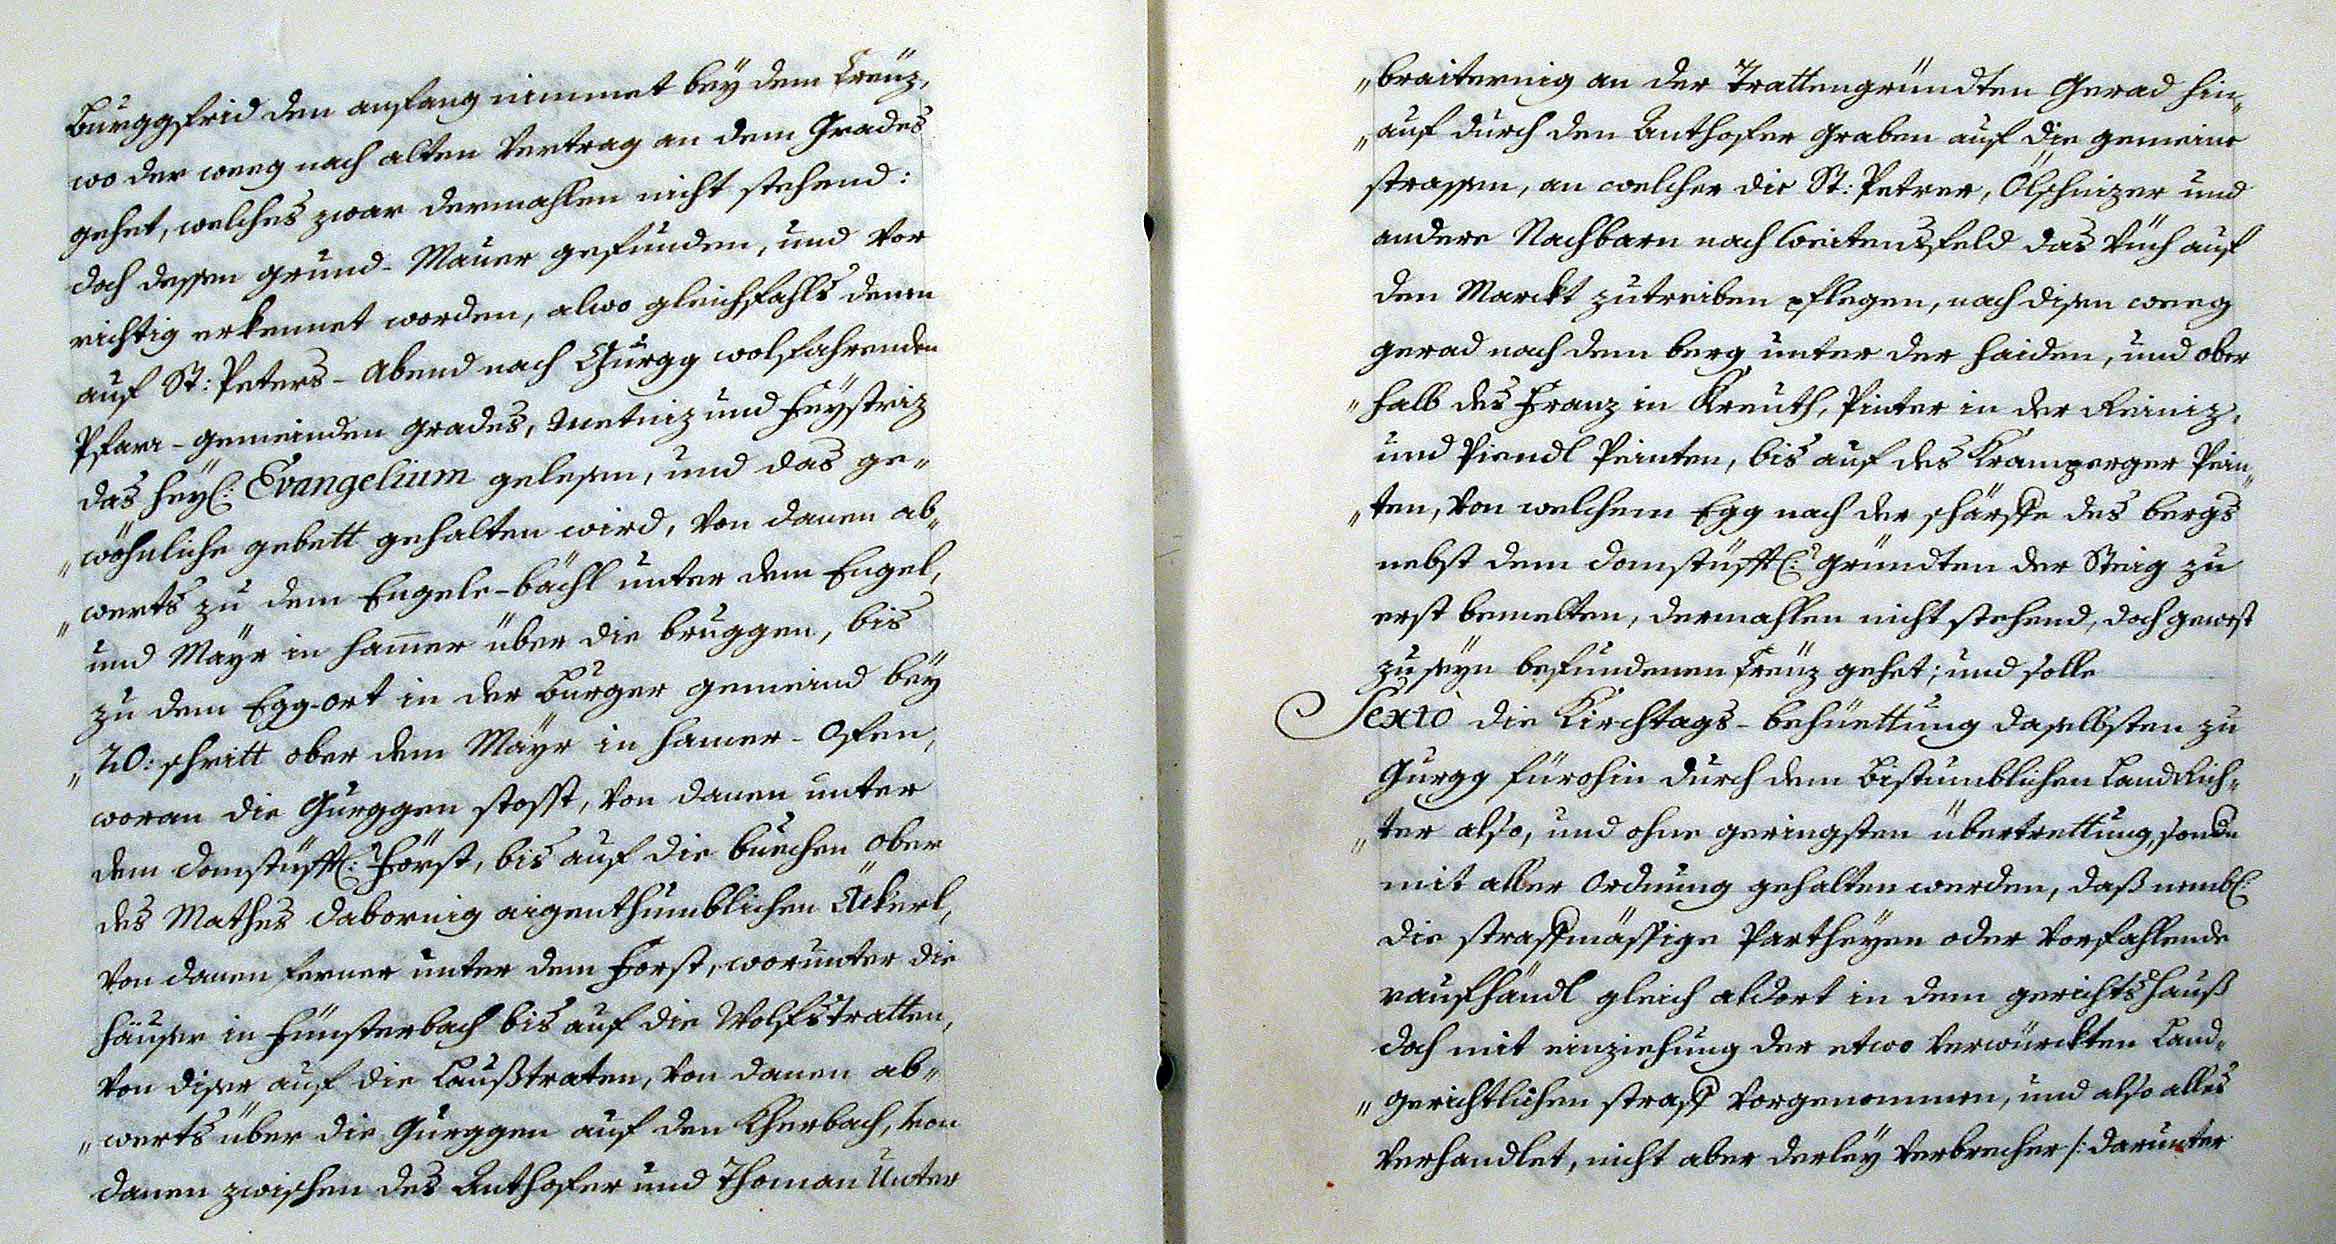 Burggfrid den anfang nimmet bëy dem Creüz,
wo der weeg nach alten Vertrag an dem Grades
gehet, welches zwar dermahlen nicht stehend:
doch dessen grund-Mauer gefunden, und Vor
richtig erkennet worden, alwo gleichfahls denen
auf St: Peters-Abend nach Gurgg wolfahrenden
Pfarr-gemeinden grades, Metniz und Feÿstriz
das heÿl: Evangelium gelesen, und das ge„
„wöhnliche gebett gehalten wird, Von danen ab„
„werts zu dem Engele-bächl unter dem Engel,
und Maÿr in Hamer über die bruggen, bis
zu dem Egg-ort in der Burger gemeind beÿ
„20: schritt ober dem Maÿr in Hamer-Ofen,
woran die Gurggen stosst, Von danen unter
dem domstüfftl: Forst, bis auf die buechen ober
des Mathes dabornig aigenthumblichen Äckerl,
Von danen ferner unter dem Forst, worunter die
häuser in Fünsterbach bis auf die Wolfstratten,
Von diser auf die Laußtraten, Von danen ab„
„werts über die Gurggen auf den Kherbach, Von
danen zwischen des Anthofer und Thoman Unter
„braiternig an der Trattengründten Gerad hin„
„auf durch den Anthofer Graben auf die gemeine
strassen, an welcher die St: Petrer, Ölschnizer und
andere Nachbarn nach Weitensfeld das Vüch auf
den Marckt zutreiben pflegen, nach disen weeg
gerad nach dem berg unter der Haiden, und ober
„halb des Franz in Kreuth, Pinter in der Reiniz,
und Piendl Peinten, bis auf des Kramperger Pein„
„ten, Von welchem Egg nach der schärffe des bergs
nebst dem domstüfftl: gründten der Steig zu
erst bemelten, dermahlen nicht stehend, doch gewest
zu seÿn befundenen Creüz gehet; und solle
Sexto die Kirchtags-behüettung daselbsten zu
Gurgg fürohin durch dem Bistumblichen Landrich„
„ter also, und ohne geringsten übertrettung, sondn
mit aller Ordnung gehalten werden, daß nembl:
die straffmässige Partheÿen oder Vorfahlende
raufhändl gleich aldort in dem gerichtshauß
doch mit einziehung der etwo Verwürckten Land„
„gerichtlichen straff Vorgenommen, und also alles
Verhandlet, nicht aber derleÿ Verbrecher /: darunter